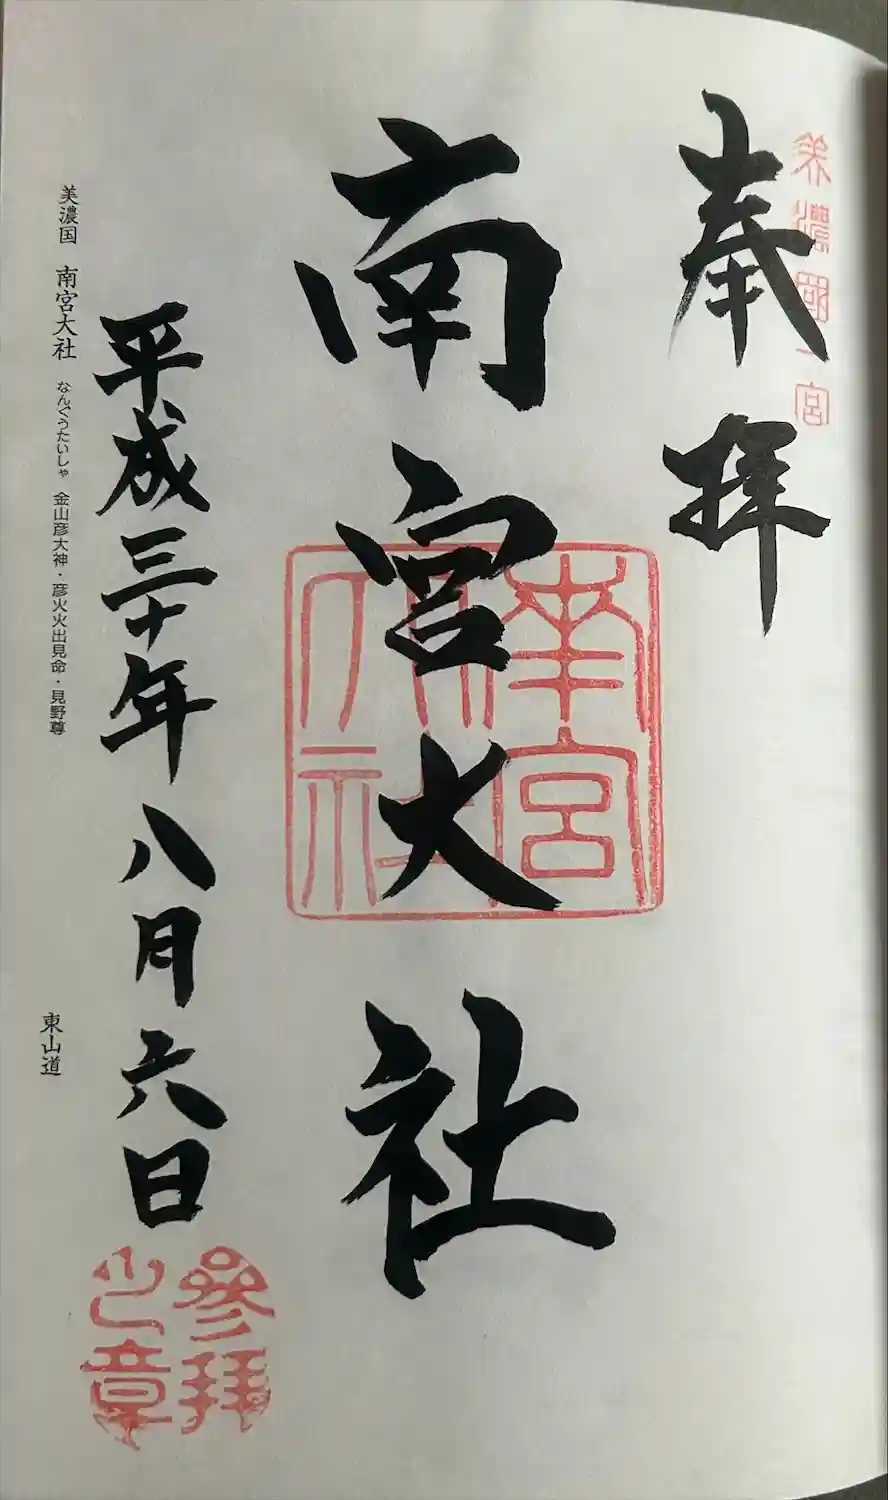 美濃國一宮
奉拝
南宮大社
南宮大社
平成三十年八月六日
參拜之章
美濃国 南宮大社 なんぐうたいしゃ 金山彦大神・彦火火出見命・見野尊
東山道